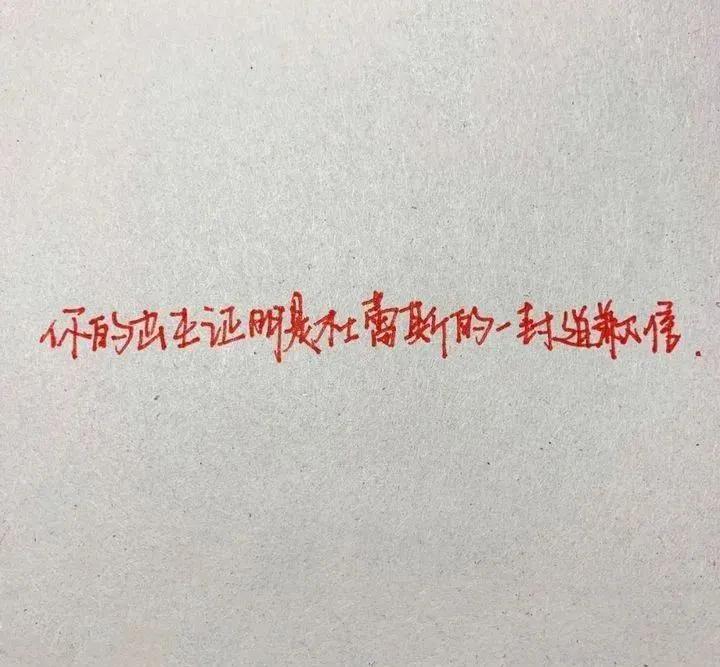 你的出生证明是杜蕾斯的一封道歉信.